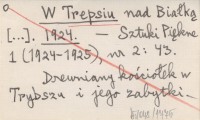 W Trepsiu nad Białką
[...]. 1924. — Sztuki Piękne
1 (1924-1925), nr 2: 43.
Drewniany kościółek w
Trybszu i jego zabytki.